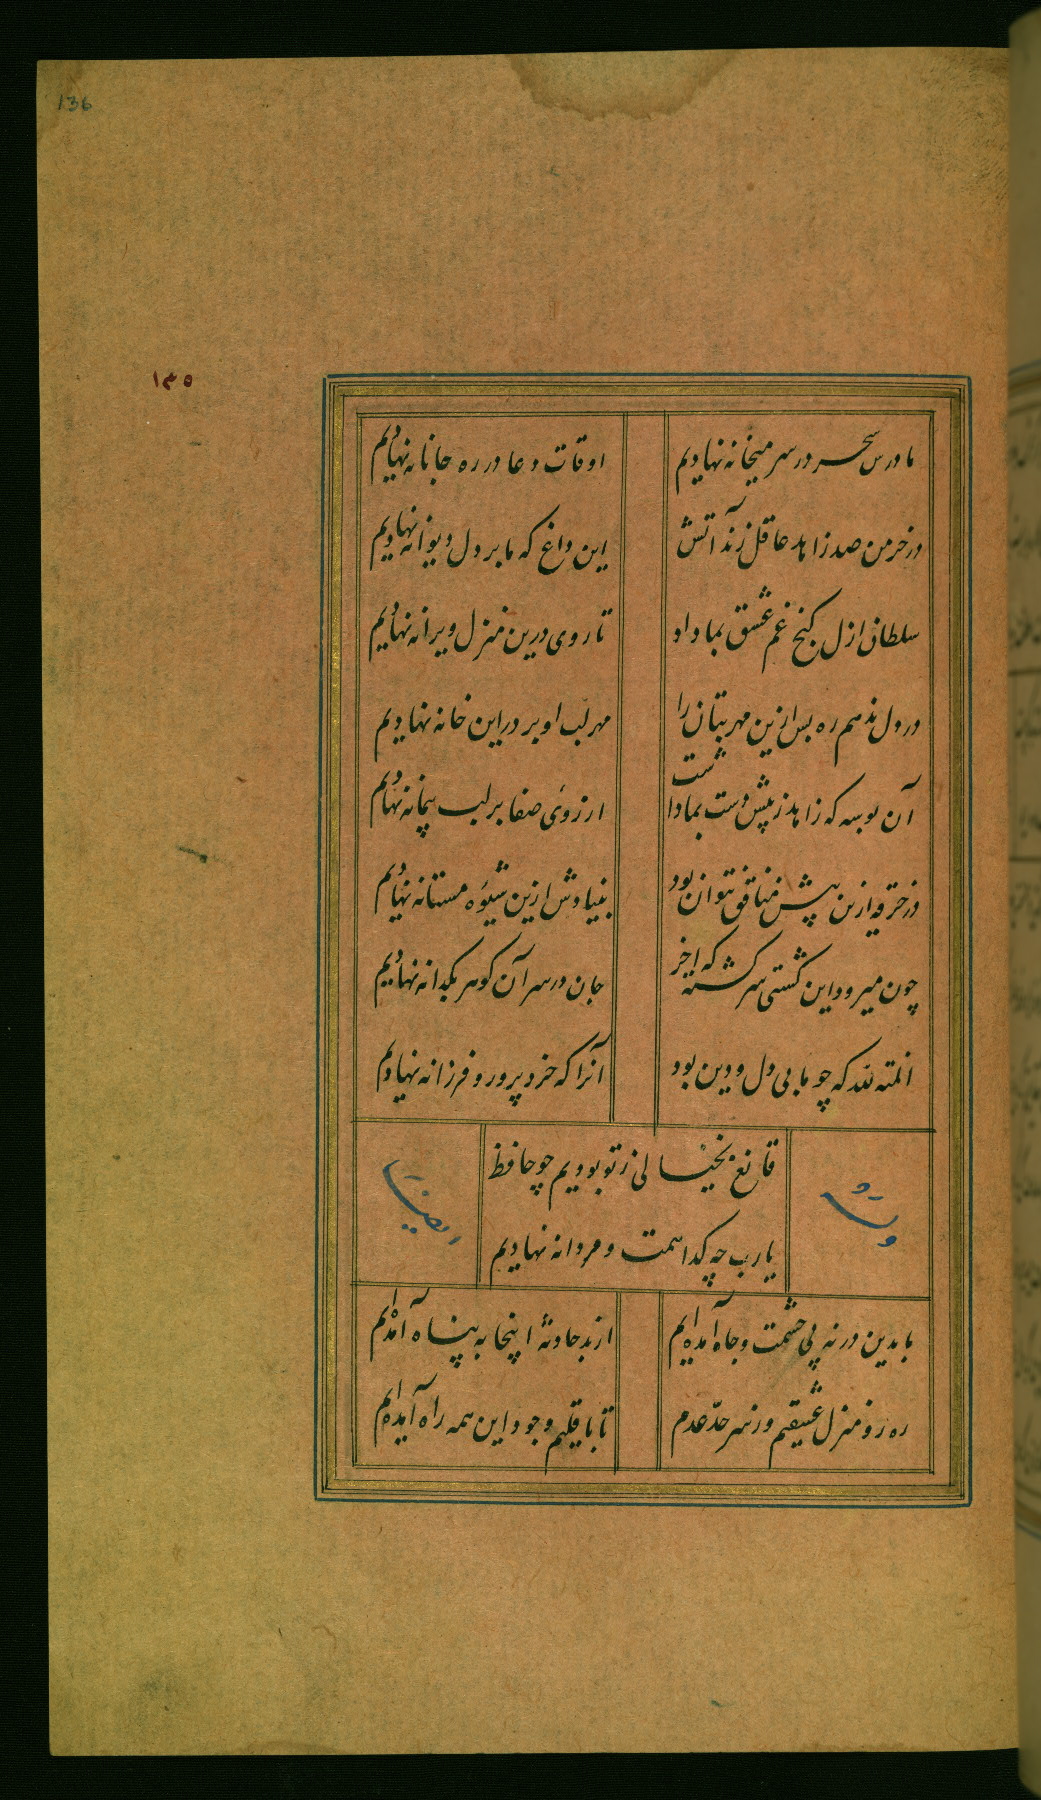 136
۱۳۵
ما درس سحر در سر میخانه نهادیم اوقات دعا در ره جانانه نهادیم
در خرمن صد زاهد عاقل زند آتش این داغ که ما بر دل دیوانه نهادیم
سلطان ازل کنج غم عشق بما داد تا روی درین منزل ویرانه نهادیم
در دل ندهم ره پس ازین مهر بتان را مهر لب او بر در این خانه نهادیم
آن بوسه که زاهد ز پیش دست بما داشت از روی صفا بر لب پیمانه نهادیم
در خرقه ازین پیش منافق نتوان بود بنیادش ازین شیوه مستانه نهادیم
چون میرود این کشتی سرکشته که اخر جان در سر آن کوهر یکدانه نهادیم
المنة لله که چو ما بی دل و دین بود آنرا که خرد پرور و فرزانه نهادیم
قانع بخیالی ز تو بودیم چو حافظ
یارب چه کدا همت و مردانه نهادیم
وله ایضا
ما بدین در نه پی حشمت و جاه آمده ایم از بد حادثه اینجا به پناه آمده ایم
ره رو منزل عشقیم و ز سر حد عدم تا باقلیم وجود این همه راه آمده ایم